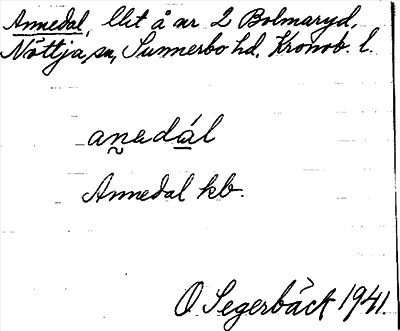 Annedal, llit å nr 2 Bolmaryd,
Nöttja sn, Sunnerbo hd, Kronob. l.
anadál
Annedal kb.
O Segerbäck 1941.